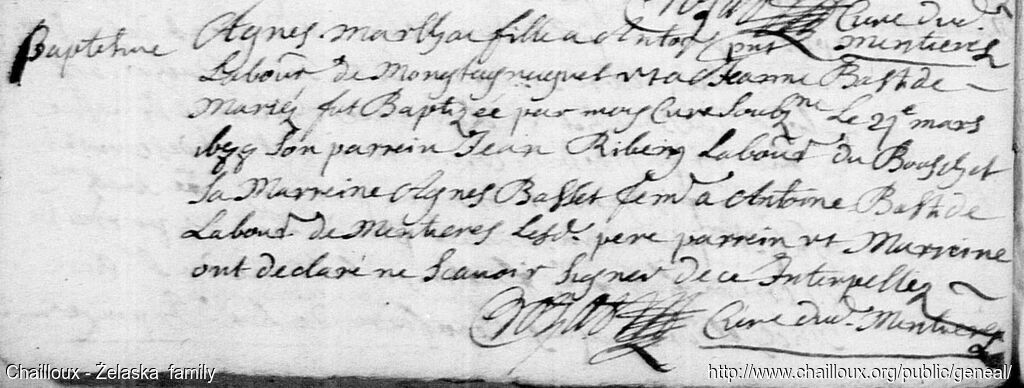 Curé dud.
Mentieres
Baptesme
Agnes marthe fille a Antoe pnt
Labour. de Mongtagnuguet et a Jeanne Bastide
Mariés fut Baptizée par moy Curé Soubz.ne Le 21e mars
Son parrein Jean Ribeng Labour. du Bouschet
Sa Marreine Agnes Basset fem. a Antoine Bastide
Labour. de Mentieres Lesd. pere parrein et Marreine
ont declaré ne Scavoir Signer de ce Interpellez
Curé dud. Mentieres
Chailloux - Żelaska family
http://www.chailloux.org/public/geneal/